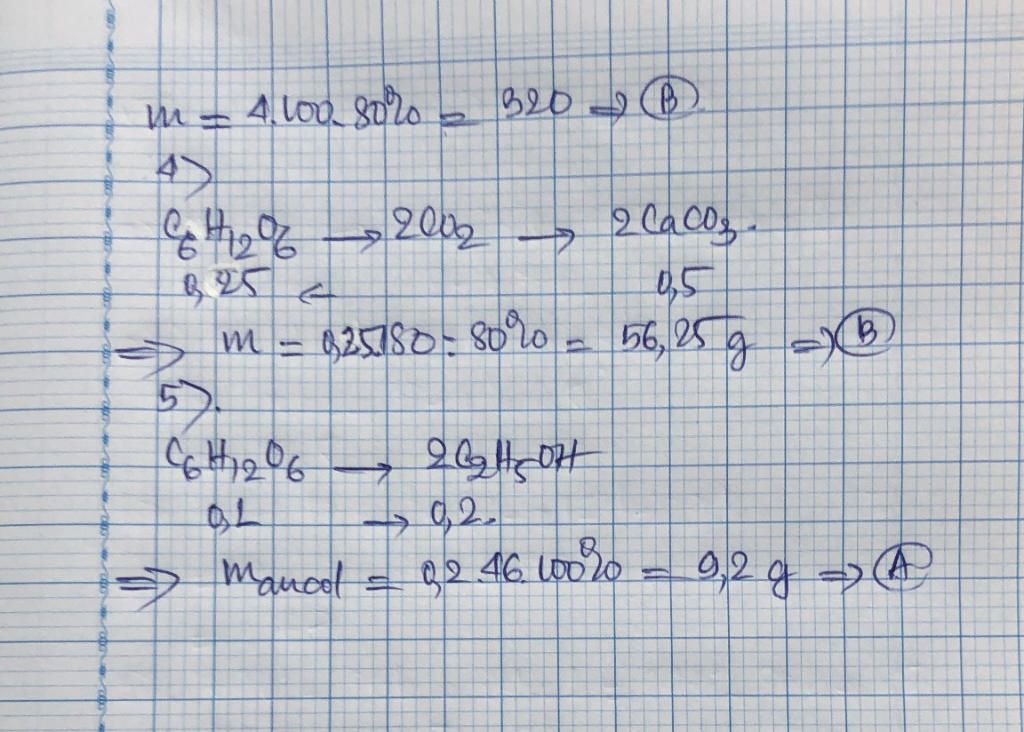 m = 4.100.80% = 320 => B
4>
C6H12O6 → 2CO2 → 2CaCO3.
0,25 ← 0,5
=> m = 0,25.180 : 80% = 56,25 g => B
5>.
C6H12O6 → 2C2H5OH
0,1 → 0,2.
=> mancol = 0,2.46.100% = 9,2 g => A